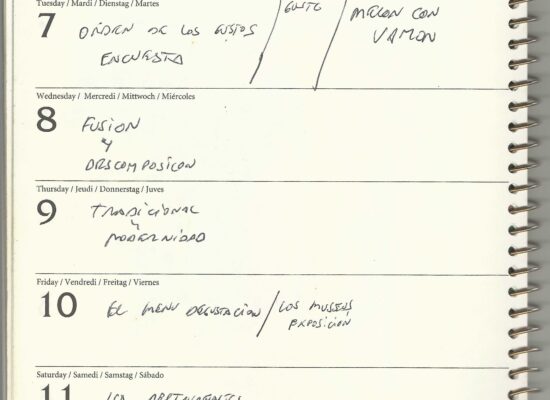 Tuesday / Mardi / Dienstag / Martes
7 ORDEN DE LOS GUSTOS / GUSTO / MELON CON
ENCUESTA VAMON
Wednesday / Mercredi / Mittwoch / Miércoles
8 FUSION
Y
DESCOMPOSICON
Thursday / Jeudi / Donnerstag / Juves
9 TRADICIONAL
Y
MODERNIDAD
Friday / Vendredi / Freitag / Viernes
10 EL MENU DEGUSTACION / LOS MUSEUS
EXPOSICIÓN
Saturday / Samedi / Samstag / Sábado
11